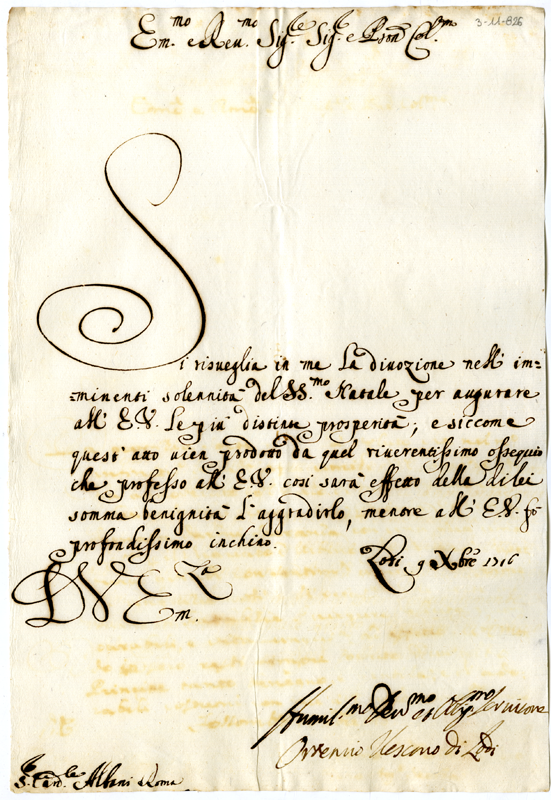 3-11-826
Em.mo e Reu.mo Sig.re Sig.re e Pron Col.mo
Si risueglia in me la diuozione nell' im=
=minenti solennità del SS.mo Natale per augurare
all' E.V. le più distinte prosperità; e siccome
quest' atto uien prodotto da quel riuerentissimo ossequio
che professo all' E.V. cosi sarà effetto della di lei
somma benignità l' aggradirlo, mentre all' E.V. fò
profondissimo inchino.
Lodi 9 Xbre 1716
D V Em.za
Humil.mo Deu.mo et Obl.mo Seruitore
Ortensio Vescouo di Lodi
S. Card.le Albani Roma